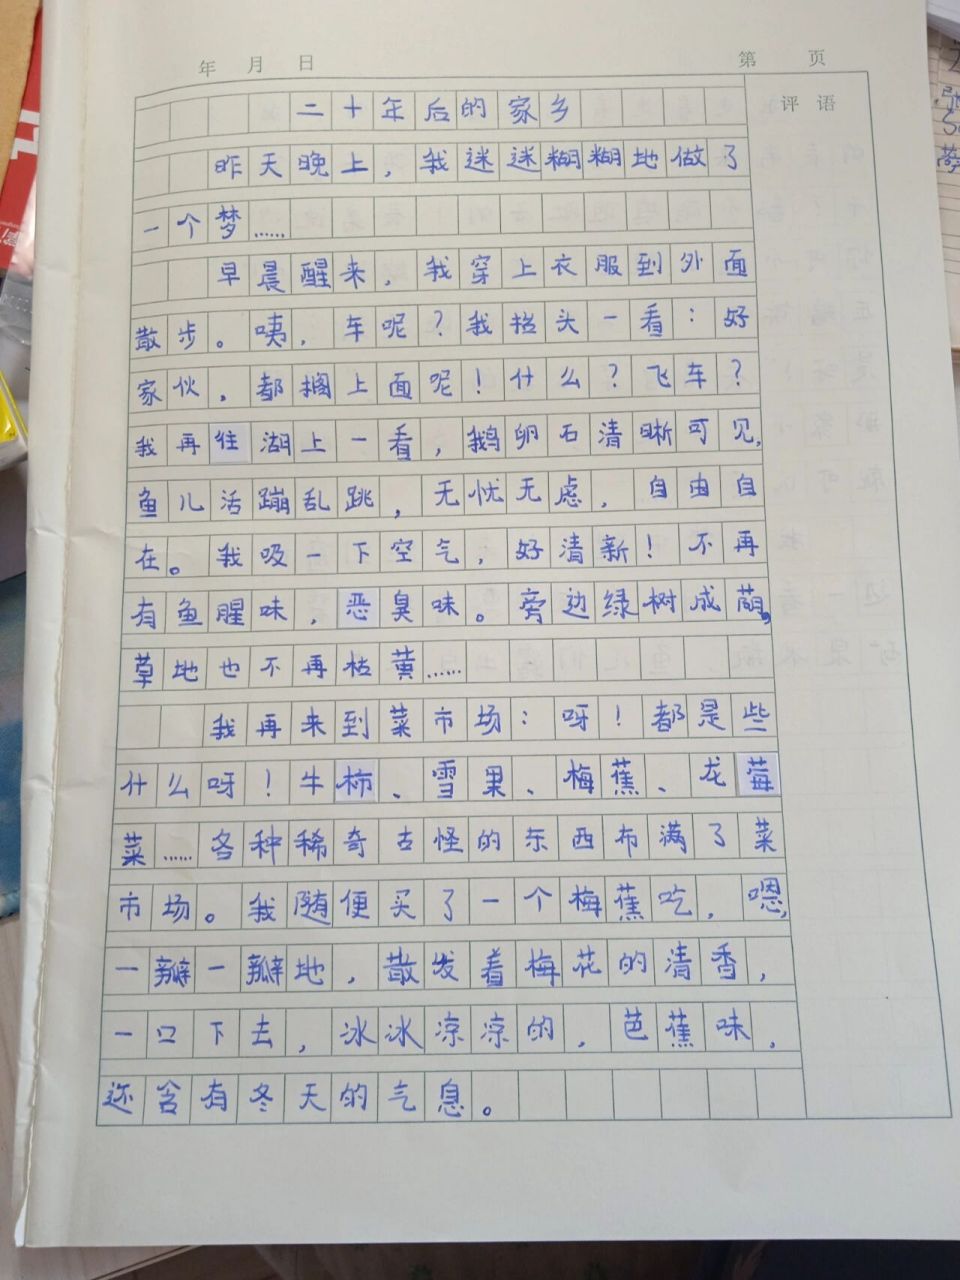 年 月 日 第 页
评 语
二十年后的家乡
昨天晚上，我迷迷糊糊地做了
一个梦……
早晨醒来，我穿上衣服到外面
散步。咦，车呢？我抬头一看：好
家伙，都搁上面呢！什么？飞车？
我再往湖上一看，鹅卵石清晰可见，
鱼儿活蹦乱跳，无忧无虑，自由自
在。我吸一下空气，好清新！不再
有鱼腥味，恶臭味。旁边绿树成荫。
草地也不再枯黄……
我再来到菜市场：呀！都是些
什么呀！牛柿、雪果、梅蕉、龙莓
菜……各种稀奇古怪的东西布满了菜
市场。我随便买了一个梅蕉吃，嗯，
一瓣一瓣地，散发着梅花的清香，
一口下去，冰冰凉凉的，芭蕉味，
还含有冬天的气息。